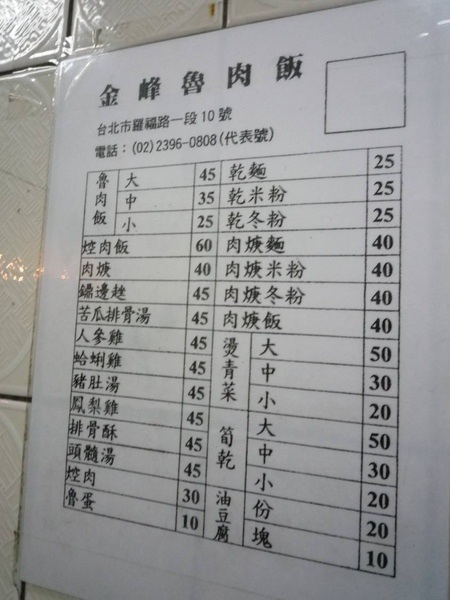 金峰魯肉飯
台北市羅福路一段10號
電話：(02)2396-0808(代表號)
魯肉飯 大 45 乾麵 25
中 35 乾米粉 25
小 25 乾冬粉 25
焢肉飯 60 肉焿麵 40
肉焿 40 肉焿米粉 40
邊趖 45 肉焿冬粉 40
苦瓜排骨湯 45 肉焿飯 40
人參雞 45 燙青菜 大 50
蛤蜊雞 45 中 30
豬肚湯 45 小 20
鳳梨雞 45 筍乾 大 50
排骨酥 45 中 30
頭髓湯 45 小 20
焢肉 30 油豆腐 份 20
魯蛋 10 塊 10